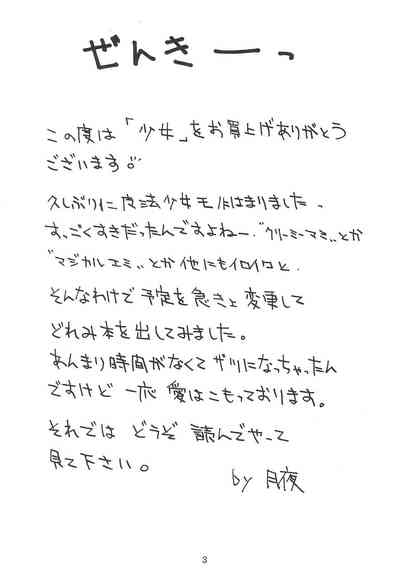 ぜんきーっ
この度は「少女」をお買上げありがとう
ございます。
久しぶりに魔法少女モノにはまりました。
すっごくすきだったんですよねー。"クリーミーマミ"とか
"マジカルエミ"とか他にもイロイロと。
そんなわけで予定を急きょ変更して
どれみ本を出してみました。
あんまり時間がなくてザツになっちゃったん
ですけど一応愛はこもっております。
それでは どうぞ 読んでやって
見て下さい。
by 月夜
3